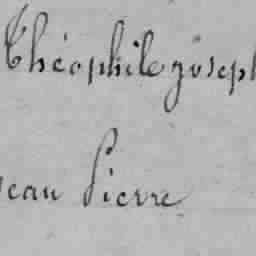 Théophile joseph
jean Pierre